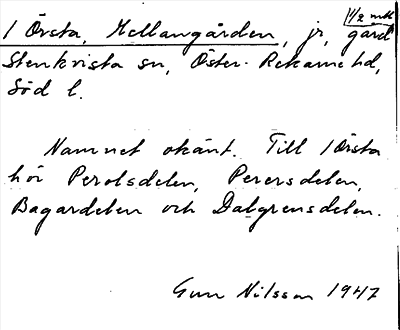 1 1/2 mtl
1 Örsta, Mellangården, jr, gård
Stenkvista sn, Öster-Rekarne hd,
Söd l.
Namnet okänt. Till 1 Örsta
hör Perolsdelen, Perersdelen,
Bagardelen och Dalgrensdelen.
Gun Nilsson 1947